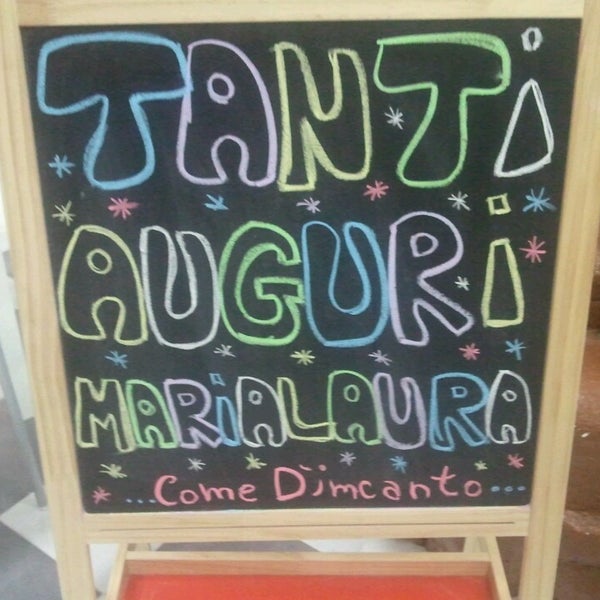 TANTi
AUGURi
MARiALAURA
...Come D'imcanto...